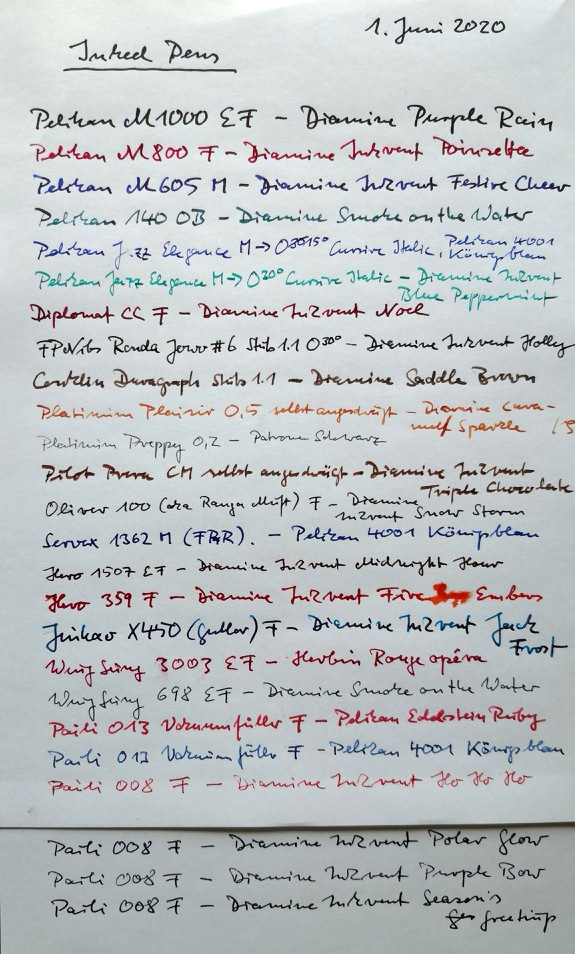 1. Juni 2020
Inked Pens
Pelikan M1000 EF – Diamine Purple Rain
Pelikan M800 F – Diamine Inkvent Poinsettia
Pelikan M605 M – Diamine Inkvent Festive Cheer
Pelikan 140 OB – Diamine Smoke on the Water
Pelikan Jazz Elegance M → O30°15° Cursive Italic, Pelikan 4001
Königsblau
Pelikan Jazz Elegance M → O30° Cursive Italic – Diamine Inkvent
Blue Peppermint
Diplomat CC F – Diamine Inkvent Noel
FPNibs Randa Jowo #6 Stub 1.1 O30° – Diamine Inkvent Holly
Conklin Duragraph Stub 1.1 – Diamine Saddle Brown
Platinum Plaisir 0,5 selbst angeschrägt – Diamine
Sparkle
Platinum Preppy 0,2 – Patrone Schwarz
Pilot Prera CM selbst angeschrägt – Diamine Inkvent
Triple Chocolate
Oliver 100 (aka Ranga) F – Diamine
Inkvent Snow Storm
Serwex 1362 M (FPR). – Pelikan 4001 Königsblau
Hero 1507 EF – Diamine Inkvent Midnight Hour
Hero 359 F – Diamine Inkvent Fire Embers
Jinhao X450 (Gullor) F – Diamine Inkvent Jack
Frost
Wing Sung 3003 EF – Herbin Rouge opéra
Wing Sung 698 EF – Diamine Smoke on the Water
Paili 013 Vakuumfüller F – Pelikan Edelstein Ruby
Paili 013 Vakuumfüller F – Pelikan 4001 Königsblau
Paili 008 F – Diamine Inkvent Ho Ho Ho
Paili 008 F – Diamine Inkvent Polar Glow
Paili 008 F – Diamine Inkvent Purple Bow
Paili 008 F – Diamine Inkvent Season's
Greetings